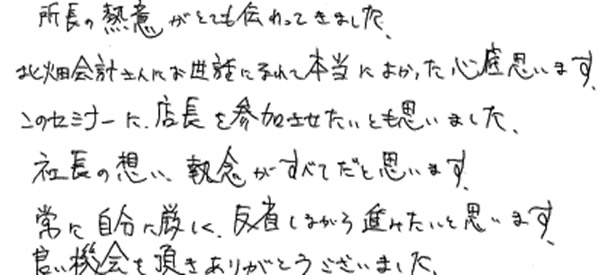 所長の熱意がとても伝わってきました。
北畑会計さんにお世話になれて本当によかったと心底思います。
このセミナーに、店長を参加させたいとも思いました。
社長の想い、執念がすべてだと思います。
常に自分に厳しく、反省しながら進みたいと思います。
良い機会を頂きありがとうございました。